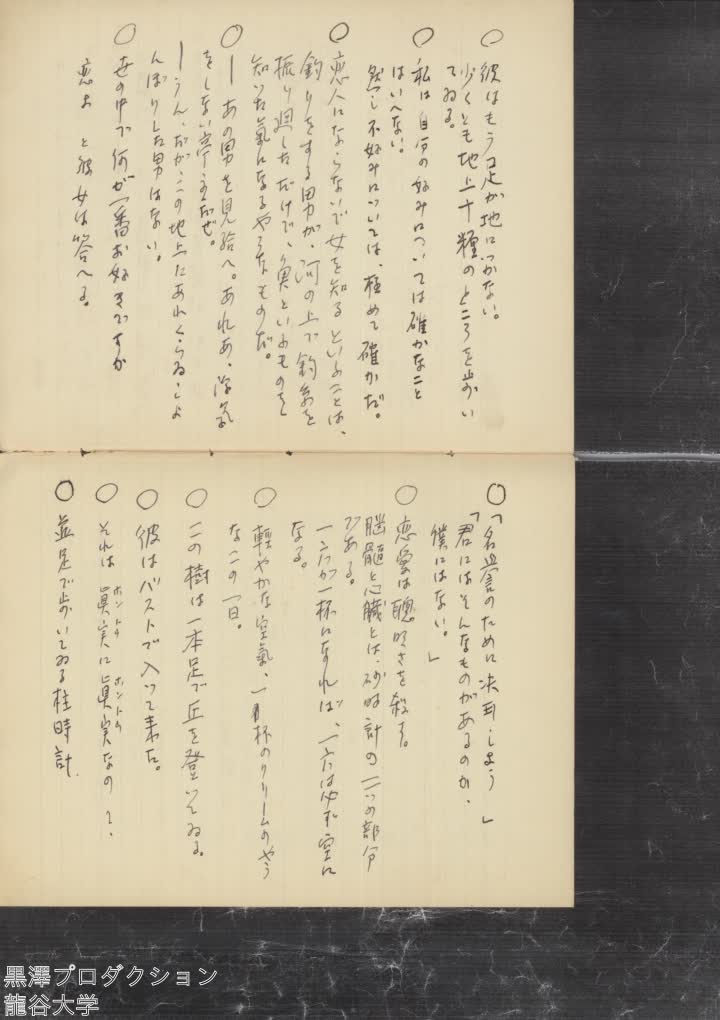 ○彼はもう足が地につかない。
少くとも地上十糎のところを歩い
てゐる。
○私は自分の好みについては確かなこと
はいへない。
然し不好みについては、極めて確かだ。
○恋人にならないで女を知るといふことは、
釣りをする男が、河の上で釣糸を
振り廻しただけで、魚といふものを
知つた氣になるやうなものだ。
○―あの男を見給へ。あれあ、浮氣
をしない亭主だぜ。
―うん、だが、この地上にあれくらゐしよ
んぼりした男はない。
○世の中で何が一番お好きですか
恋よ と彼女は答へる。
○「名誉のために決斗しよう」
「君にはそんなものがあるのか、
僕にはない。」
○恋愛は聰明さを殺す。
脳髄と心臓とは、砂時計の二つの部分
である。
一方が一杯になれば、一方は必ず空に
なる。
○軽やかな空氣、一杯のクリームのやう
な この一日。
○この樹は一本足で丘を登つてゐる。
○彼はバストで入つて来た。
○それは眞実に眞実なの
ホントウ ホントウ
○並足で歩いてゐる柱時計.
黒澤プロダクション
龍谷大学